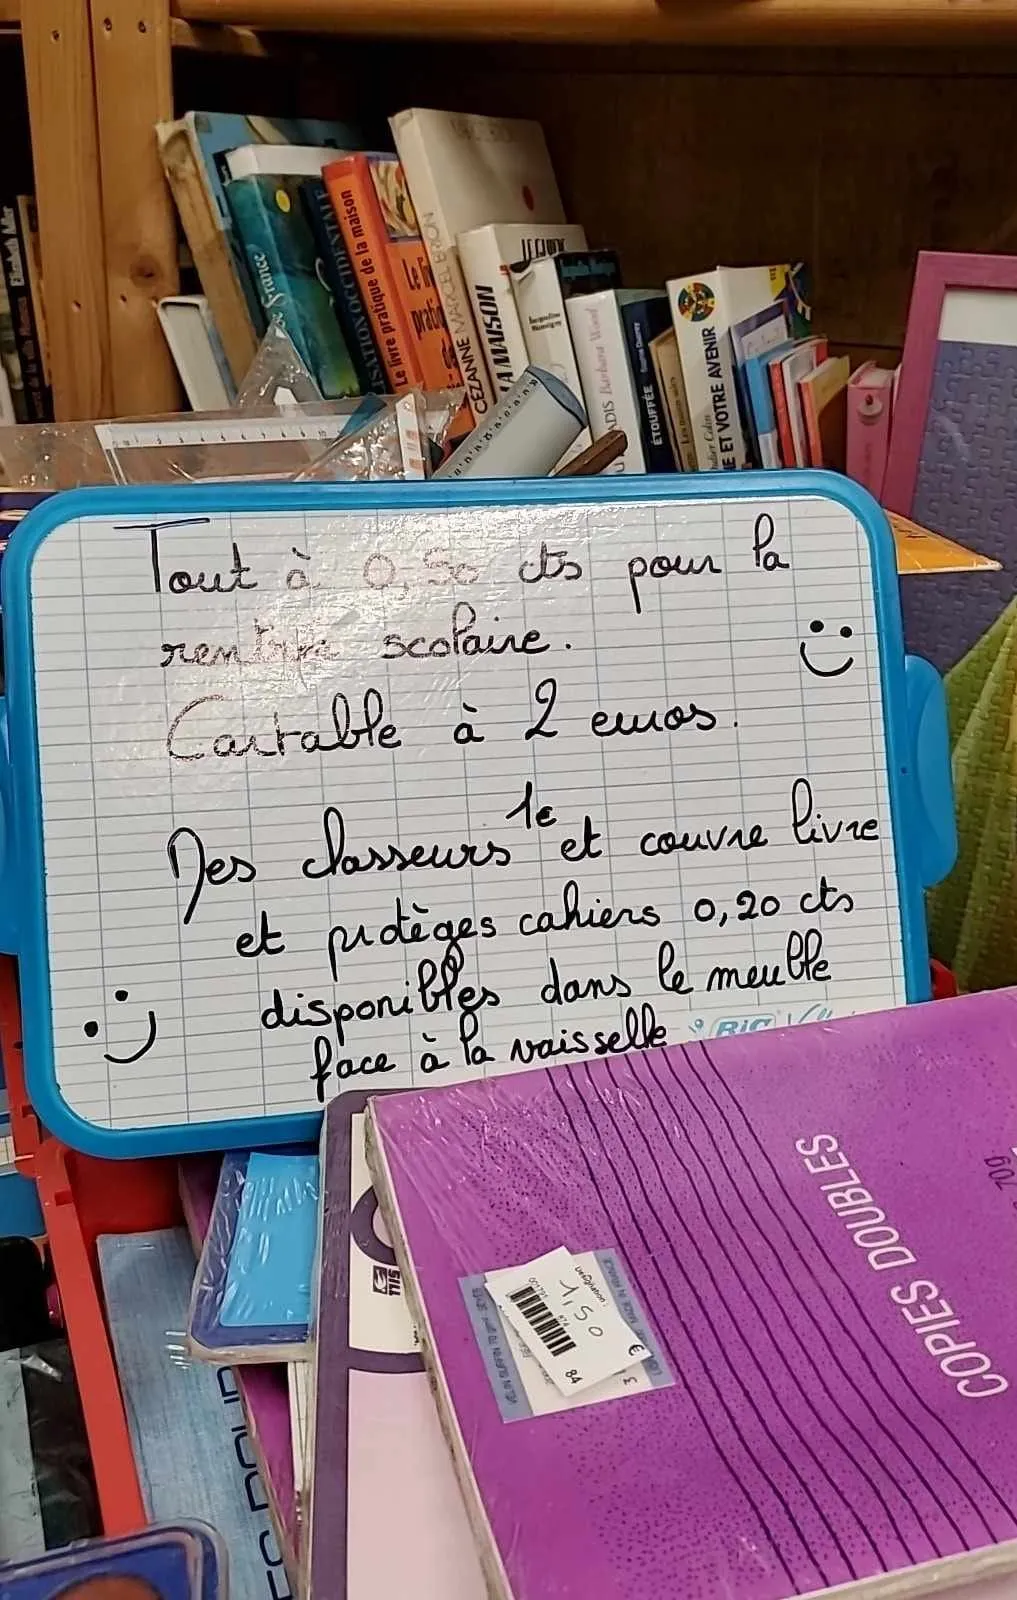 Elizabeth Adler
France
OCCIDENTALE
Le livre pratique de la maison
CÉZANNE MARCEL BRION
LA MAISON
Barbara Wood
ÉTOUFFÉE
E ET VOTRE AVENIR
Tout à 0,50 cts pour la
rentrée scolaire.
Cartable à 2 euros.
1€
Des classeurs et couvre livre
et protèges cahiers 0,20 cts
disponibles dans le meuble
face à la vaisselle
BIC
COPIES DOUBLES
70g
1,50
€
84